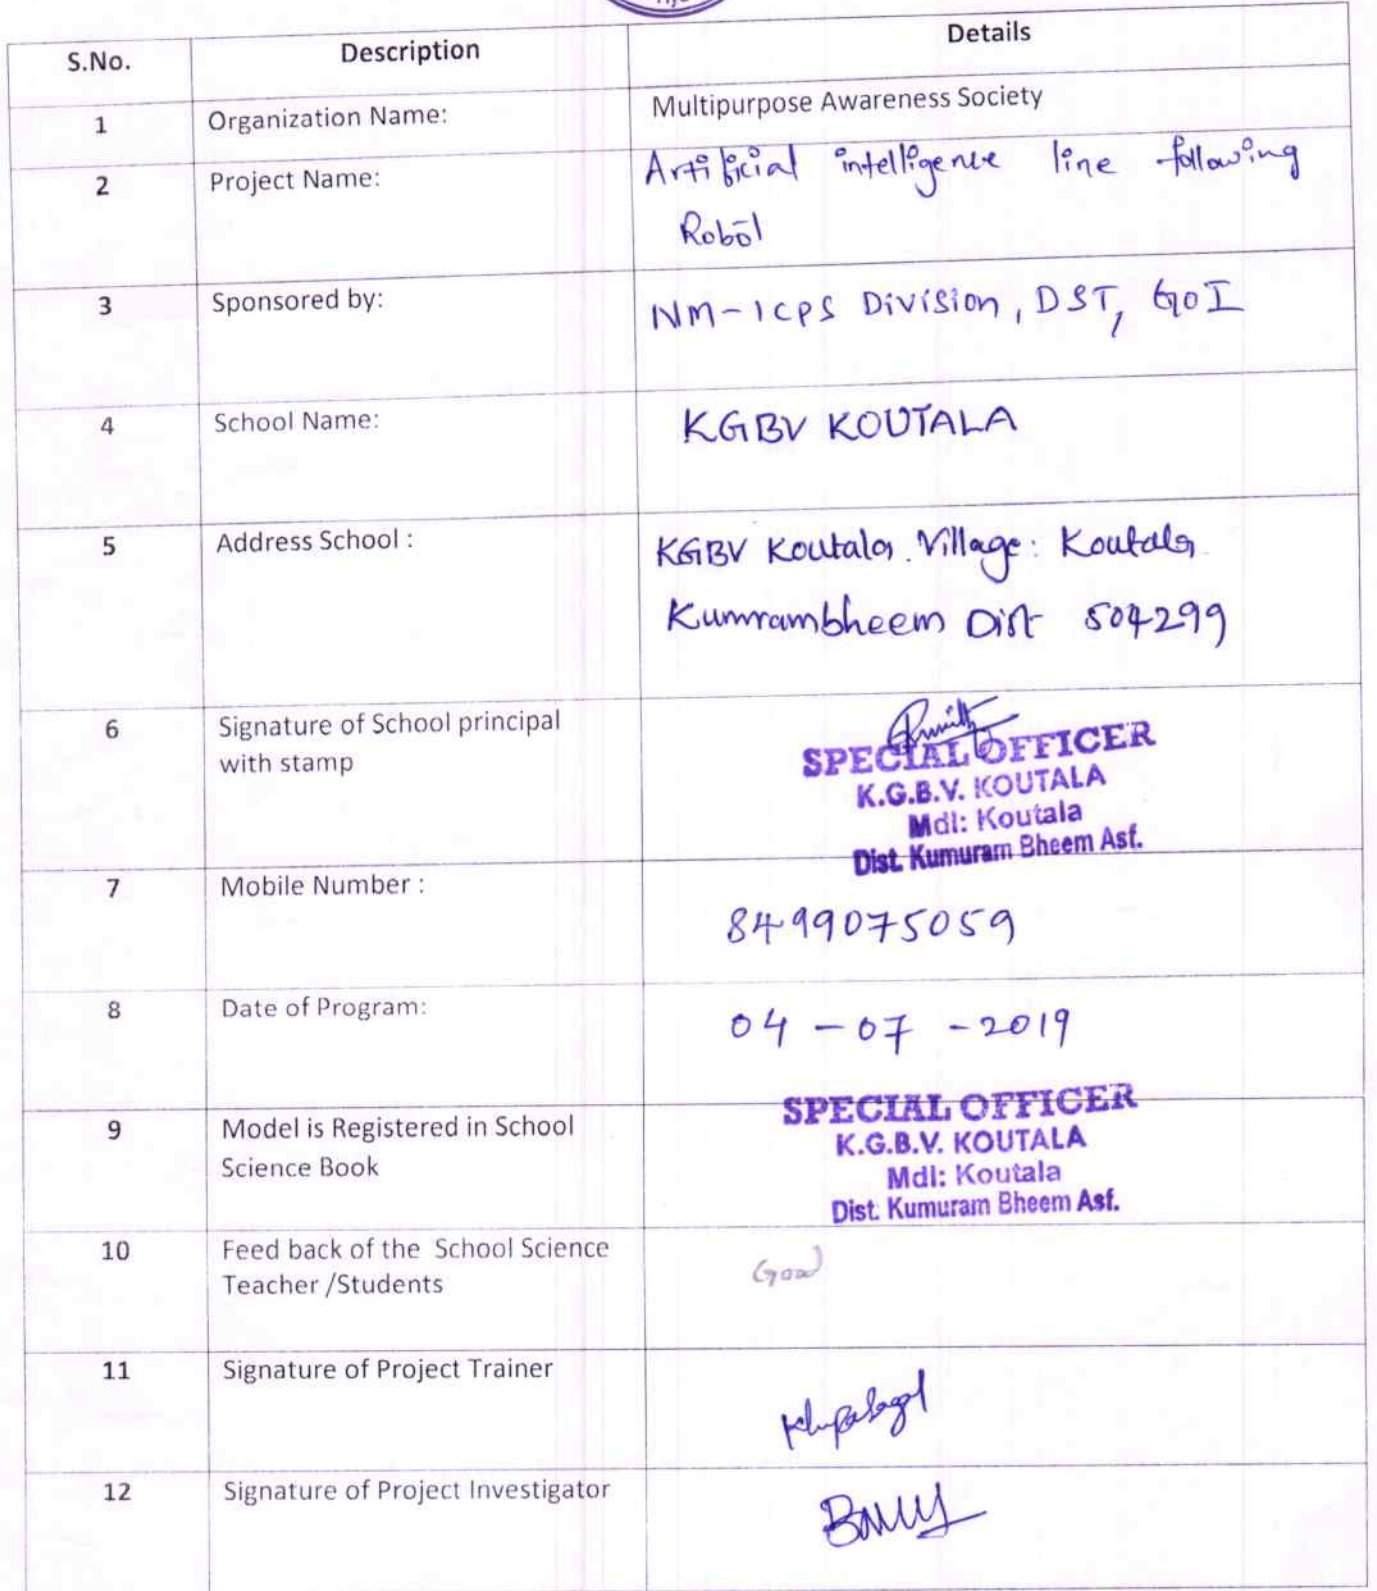 S.No. Description Details
1 Organization Name: Multipurpose Awareness Society
2 Project Name: Artificial intelligence line following
Robot
3 Sponsored by: NM-ICPS Division, DST, GOI
4 School Name: KGBV KOUTALA
5 Address School : KGBV Koutala. Village: Koutala
Kumrambheem Dist 504299
6 Signature of School principal
with stamp
SPECIAL OFFICER
K.G.B.V. KOUTALA
Mdl: Koutala
Dist. Kumuram Bheem Asf.
7 Mobile Number : 8499075059
8 Date of Program: 04-07-2019
9 Model is Registered in School
Science Book
SPECIAL OFFICER
K.G.B.V. KOUTALA
Mdl: Koutala
Dist. Kumuram Bheem Asf.
10 Feed back of the School Science
Teacher /Students
Good
11 Signature of Project Trainer
12 Signature of Project Investigator